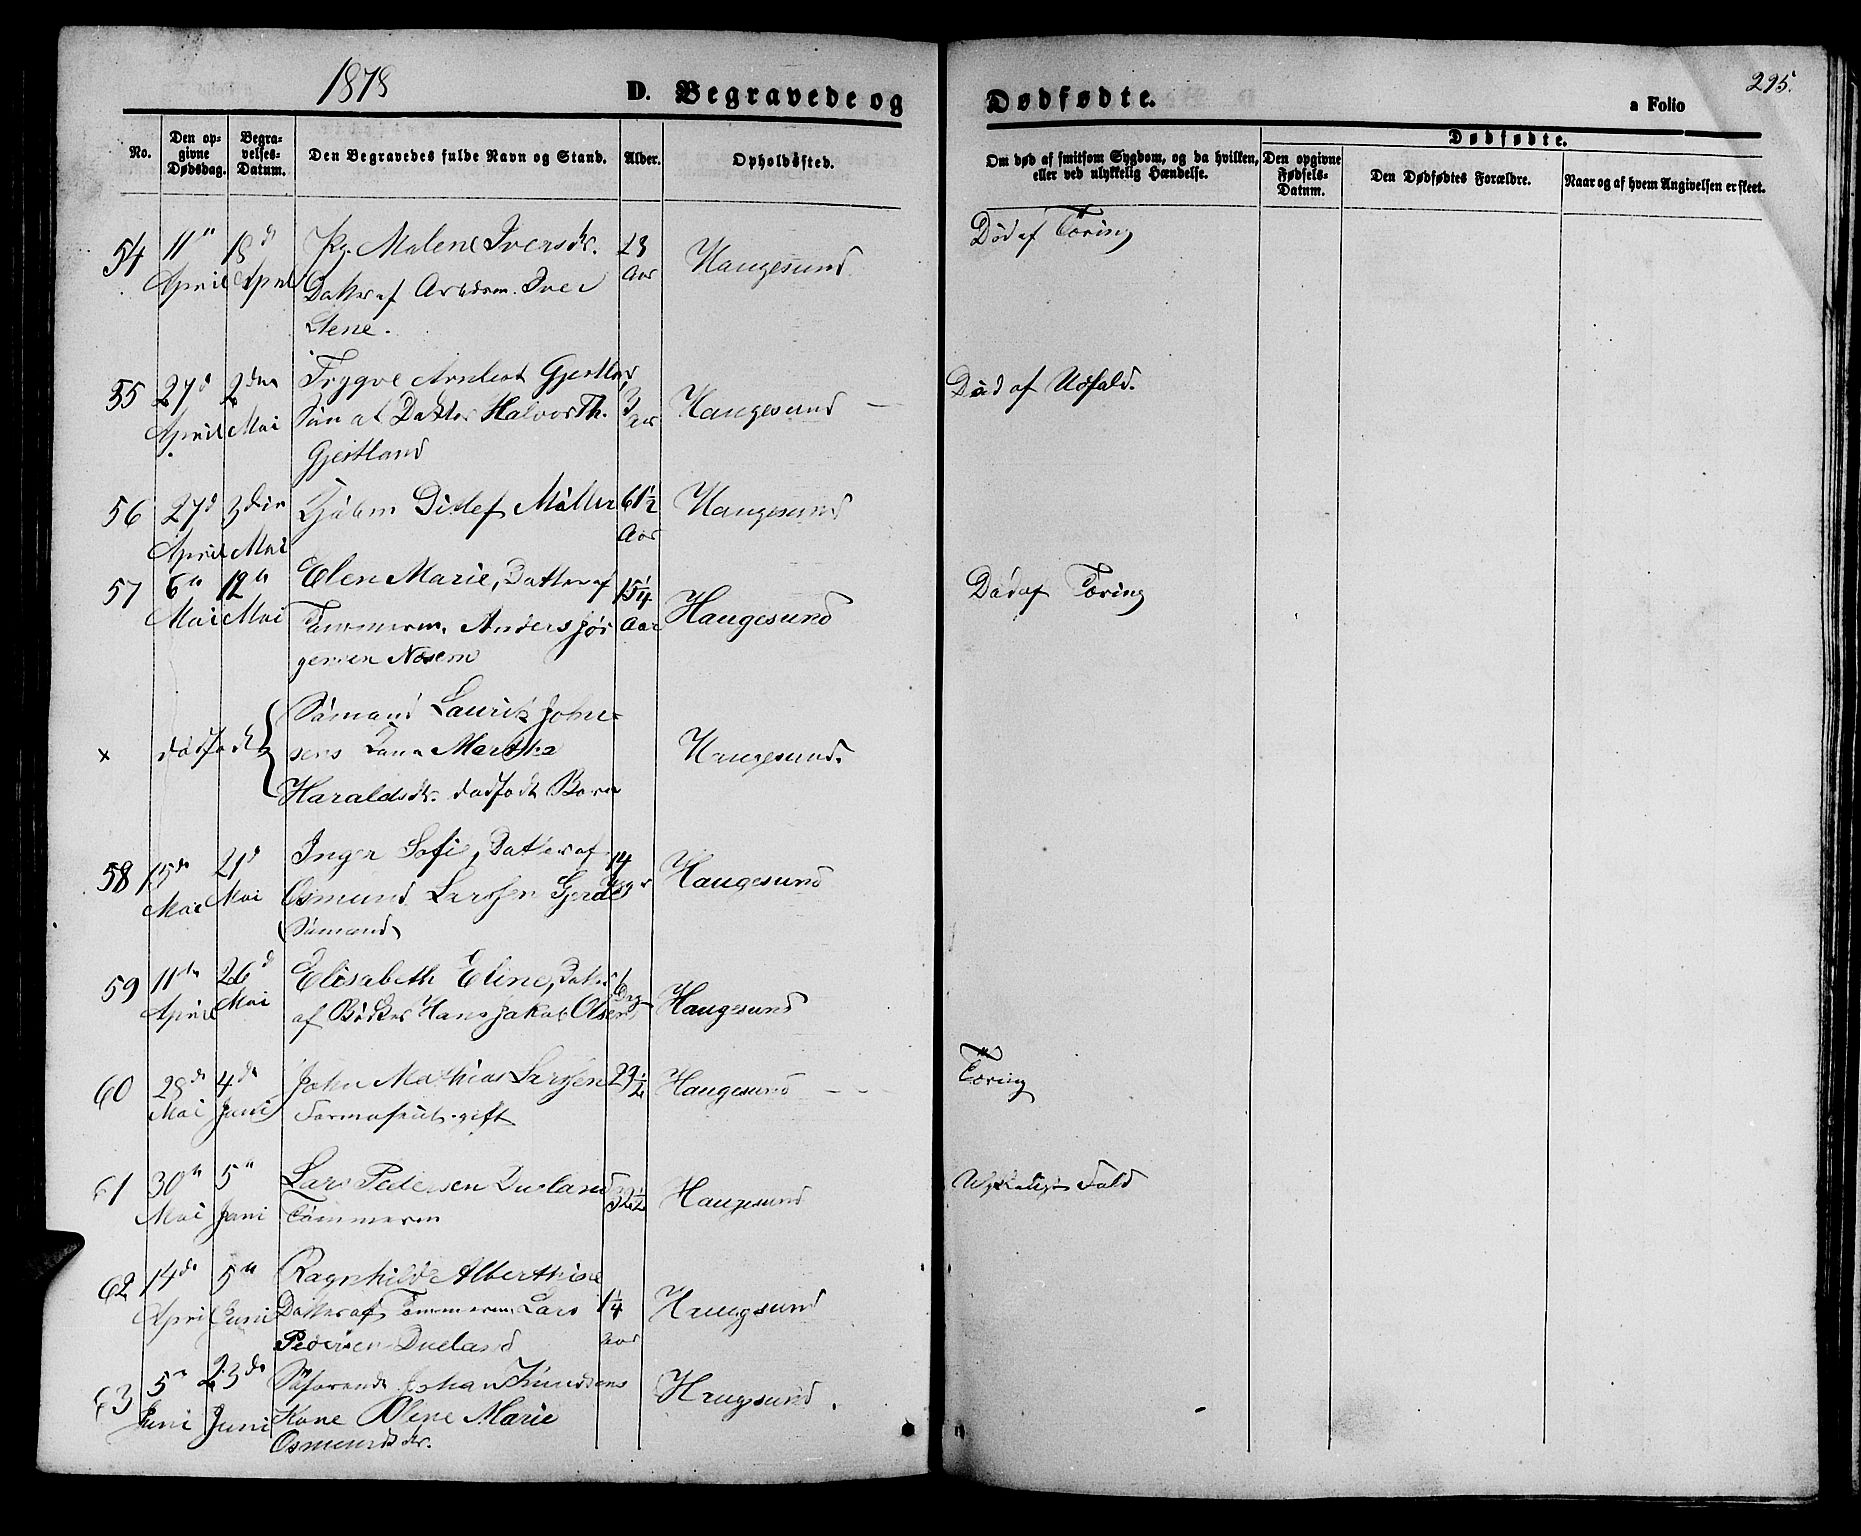 1878
D. Begravede og Dødfødte.
a Folio 295.
No.
Den opgivne Dødsdag.
Begravelses-Datum.
Den Begravedes fulde Navn og Stand.
Alder.
Opholdssted.
Om død af smitsom Sygdom, og da hvilken, eller ved ulykkelig Hændelse.
Dødfødte.
Den opgivne Fødsels-Datum.
Den Dødfødtes Forældre.
Naar og af hvem Angivelsen er skeet.
54 11te 18de Pg. Malene Iversdtr. 23 Haugesund Død af Tæring
April April Datter af Arbdsm. Iver Aar
Stene.
55 27d 2den Trygve Gjestland 3 Haugesund Död af
April Mai Sön af Halvor Th. Aar
Gjestland
56 27d 3die Ditlef Möller 61½ Haugesund
April Mai Aar
57 6te 12te Elen Marie, Datter af 15¼ Haugesund Död af Tæring
Mai Mai Tømmerm. Anders Jör Aar
gensen Nosem
x dödfödt Sömand Lauritz Johne-
sens Kone Martha Haugesund.
Haraldsdtr. dödfödt Barn
58 15de 21d Inger Sofie, Datter af 14 Haugesund
Mai Mai Osmund Larssen Gjerde Dage
Sömand
59 11te 26d Elisabeth Eline, Datter 6 Haugesund
April Mai af Bödker Hans Jakob Olsen Dage
60 28de 4de John Mathias Larssen 29½ Haugesund Tæring
Mai Juni gift
61 30te 5te Lars Pedersen Dueland 32½ Haugesund Fald
Mai Juni Tömmerm
62 14de 5te Ragnhilde Alberthine
April Juni Datter af Tømmerm. Lars 1¼ Haugesund
Pedersen Dueland Aar
63 5te 23de Söfarende Johan Knudsens Haugesund.
Juni Juni Kone Olene Marie
Osmundsdtr.